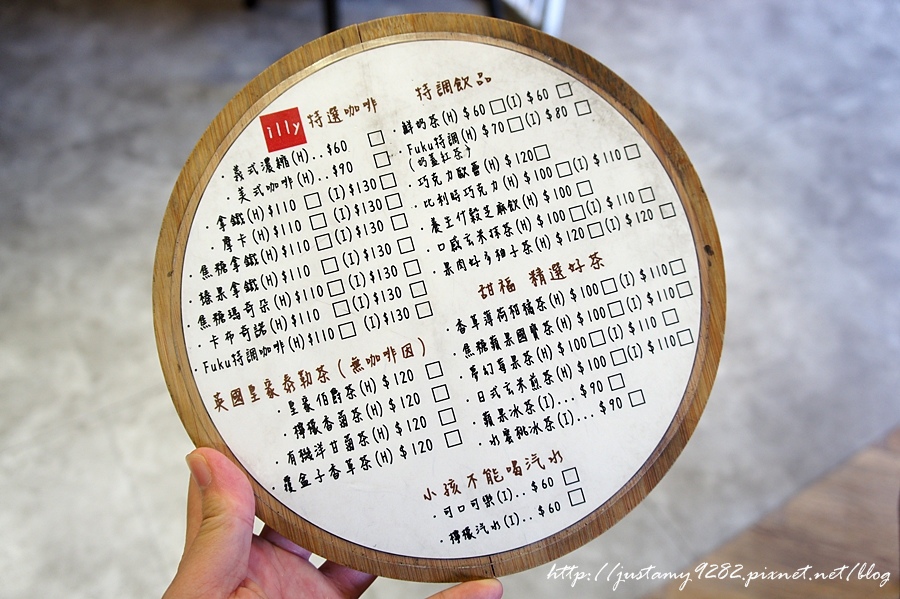 illy 特選咖啡
・義式濃縮(H)..$60 □
・美式咖啡(H)..$90 □
・拿鐵(H)$110 □ (I)$130 □
・摩卡(H)$110 □ (I)$130 □
・焦糖拿鐵(H)$110 □ (I)$130 □
・榛果拿鐵(H)$110 □ (I)$130 □
・焦糖瑪奇朵(H)$110 □ (I)$130 □
・卡布奇諾(H)$110 □ (I)$130 □
・Fuku特調咖啡(H)$110 □ (I)$130 □
英國皇家泰勒茶(無咖啡因)
・皇家伯爵茶(H) $120 □
・檸檬香茵茶(H) $120 □
・有機洋甘茵茶(H) $120 □
・覆盆子香草茶(H) $120 □
特調飲品
・鮮奶茶(H) $60 □ (I) $60 □
・Fuku特調(H) $70 □ (I) $80 □
(奶蓋紅茶)
・巧克力歐蕾(H) $120 □
・比利時巧克力(H) $100 □ (I) $110 □
・養生什穀芝麻飲(H) $100 □
・口感玄米抹茶(H) $100 □ (I) $110 □
・果肉好多柚子茶(H) $120 □ (I) $120 □
甜福 精選好茶
・香草薄荷柑橘茶(H) $100 □ (I) $110 □
・焦糖蘋果國寶茶(H) $100 □ (I) $110 □
・夢幻莓果茶(H) $100 □ (I) $110 □
・日式玄米煎茶(H) $100 □ (I) $110 □
・蘋果冰茶(I)... $90 □
・水蜜桃冰茶(I)... $90 □
小孩不能喝汽水
・可口可樂(I)..$60 □
・檸檬汽水(I)..$60 □
http://justamy9282.pixnet.net/blog